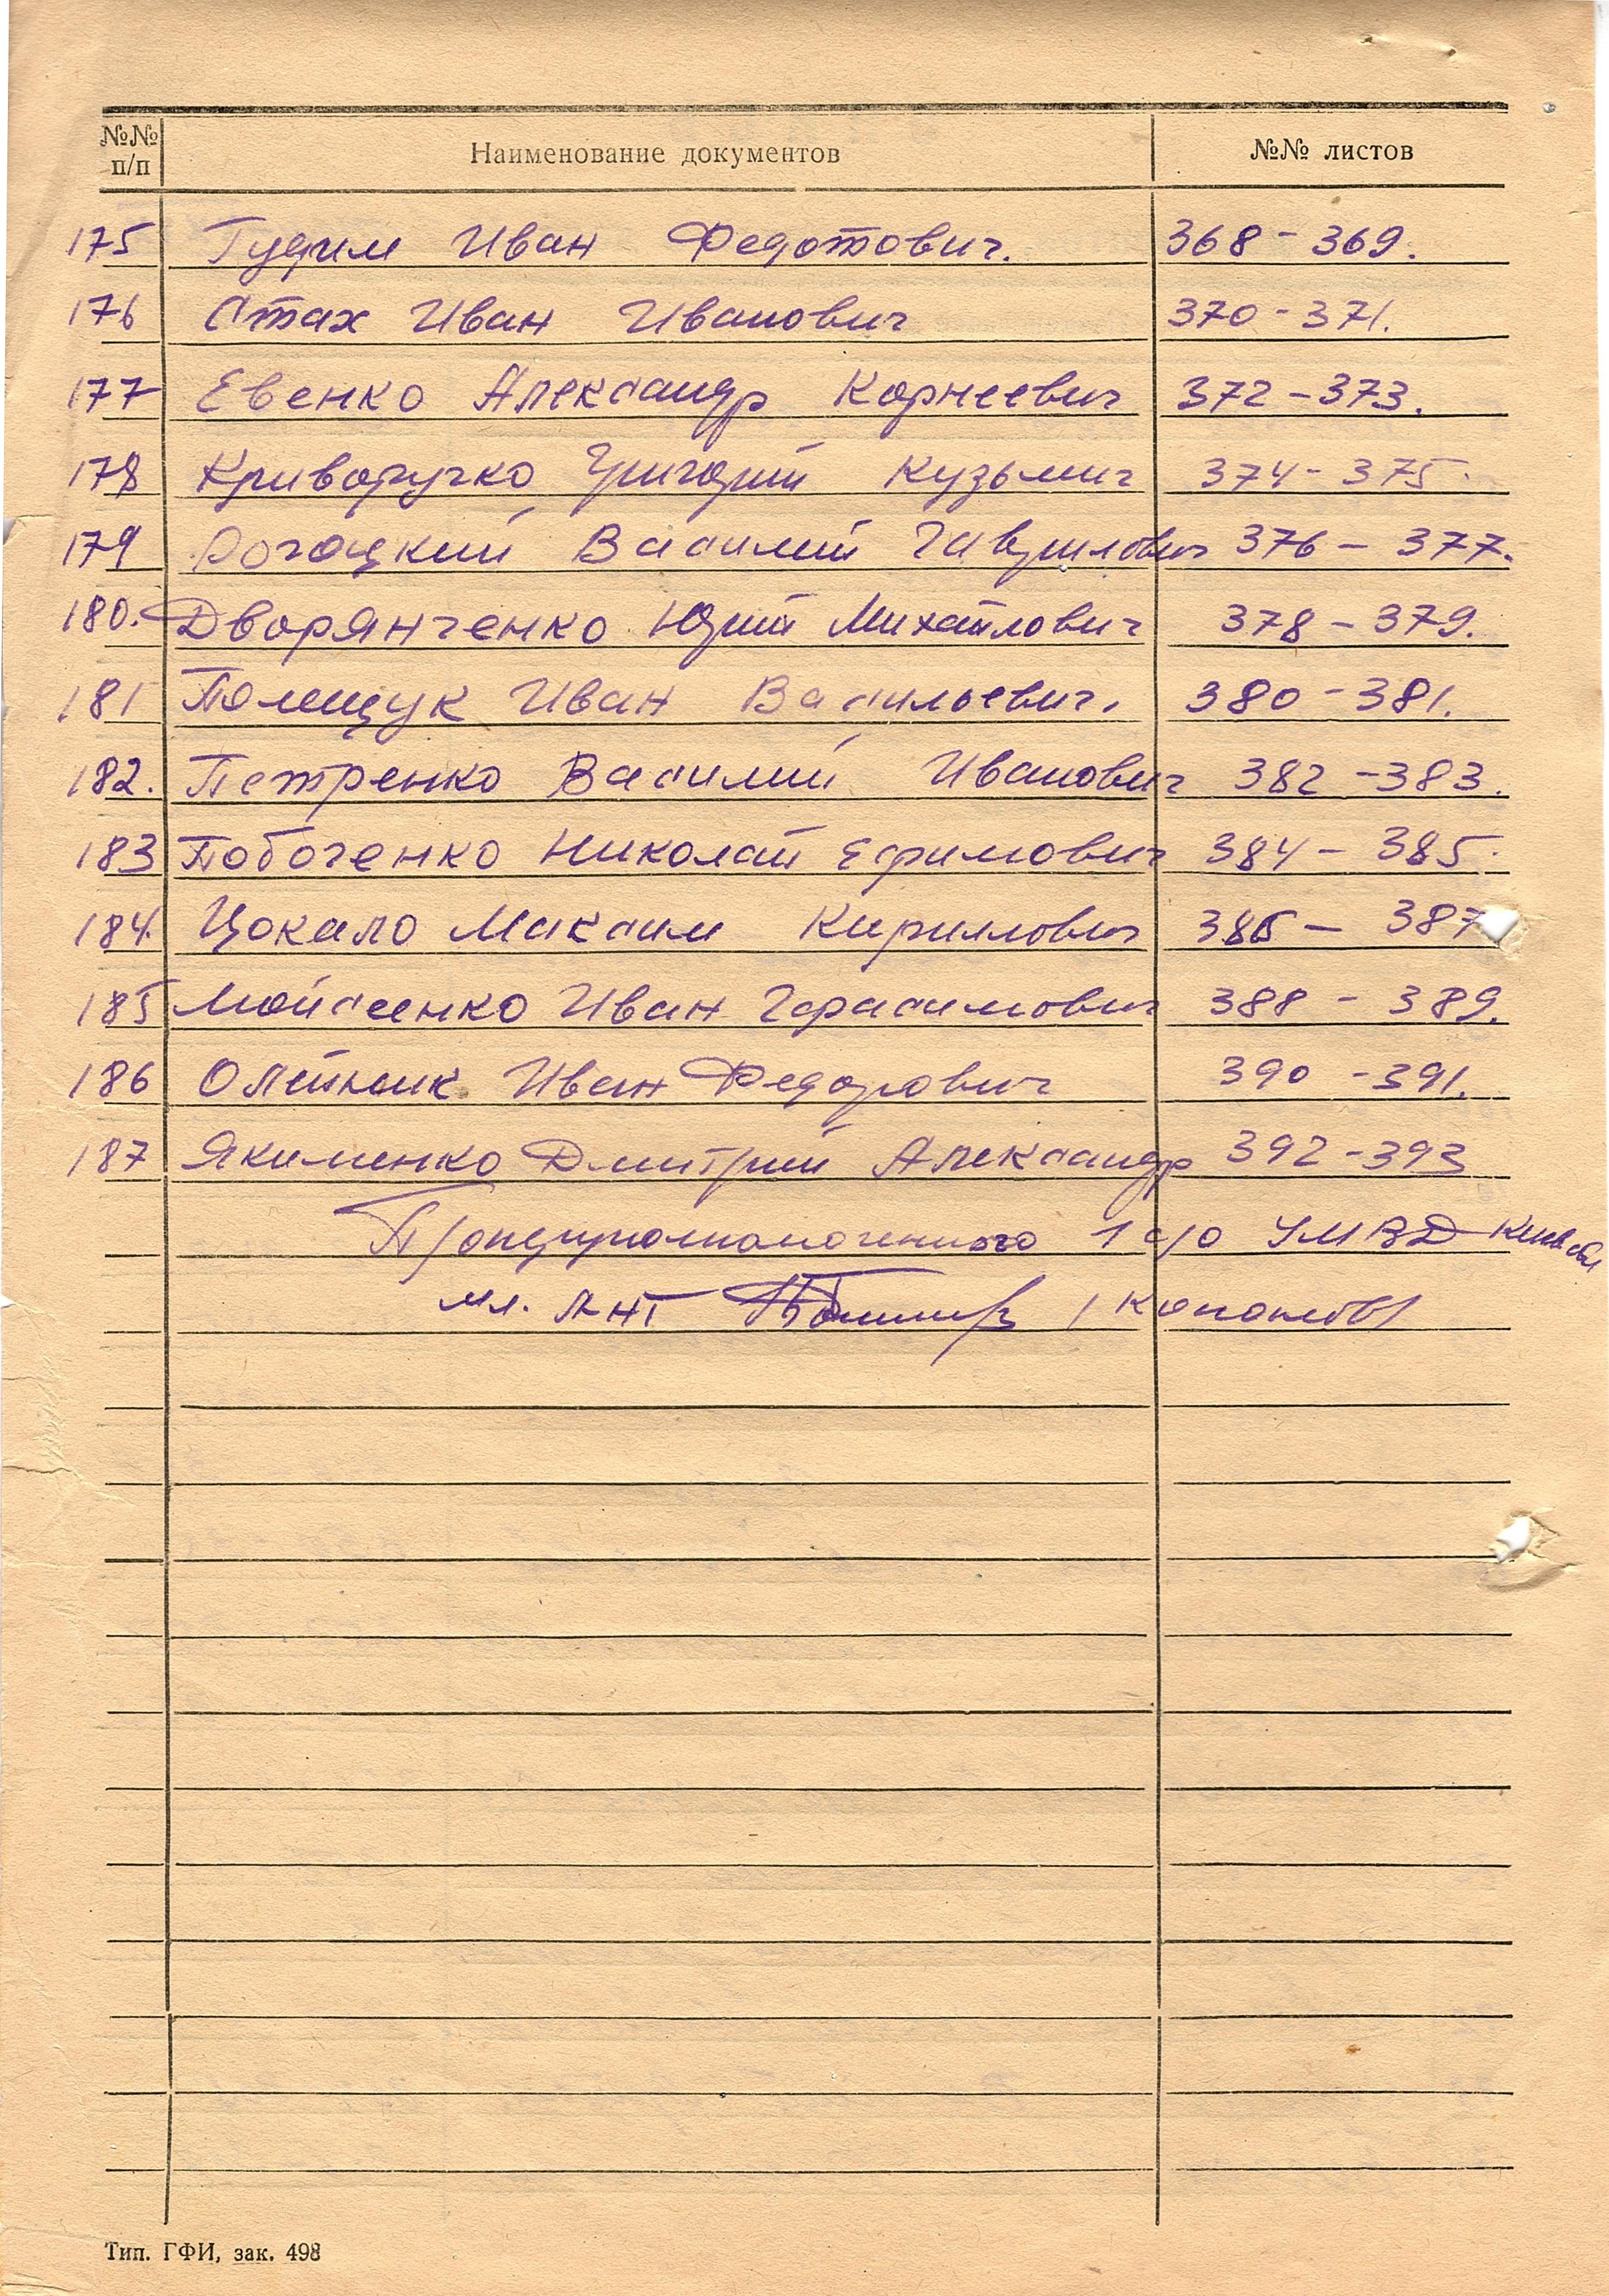 №№ п/п Наименование документов №№ листов
175 Гудим Иван Федотович. 368 - 369.
176 Стах Иван Иванович 370 - 371.
177 Евенко Александр Корнеевич 372 - 373.
178 Криворучко Григорий Кузьмич 374 - 375.
179 Рогоцкий Василий Гаврилович 376 - 377.
180. Дворянченко Юрий Михайлович 378 - 379.
181 Полищук Иван Васильевич. 380 - 381.
182. Петренко Василий Иванович 382 - 383.
183 Побоченко Николай Ефимович 384 - 385.
184. Цокало Максим Кириллович 386 - 387
185 Мойсеенко Иван Герасимович 388 - 389.
186 Олейник Иван Федорович 390 - 391.
187 Якименко Дмитрий Александр 392 - 393
1 с/о УМВД Киев обл
мл. лнт
Тип. ГФИ, зак. 498